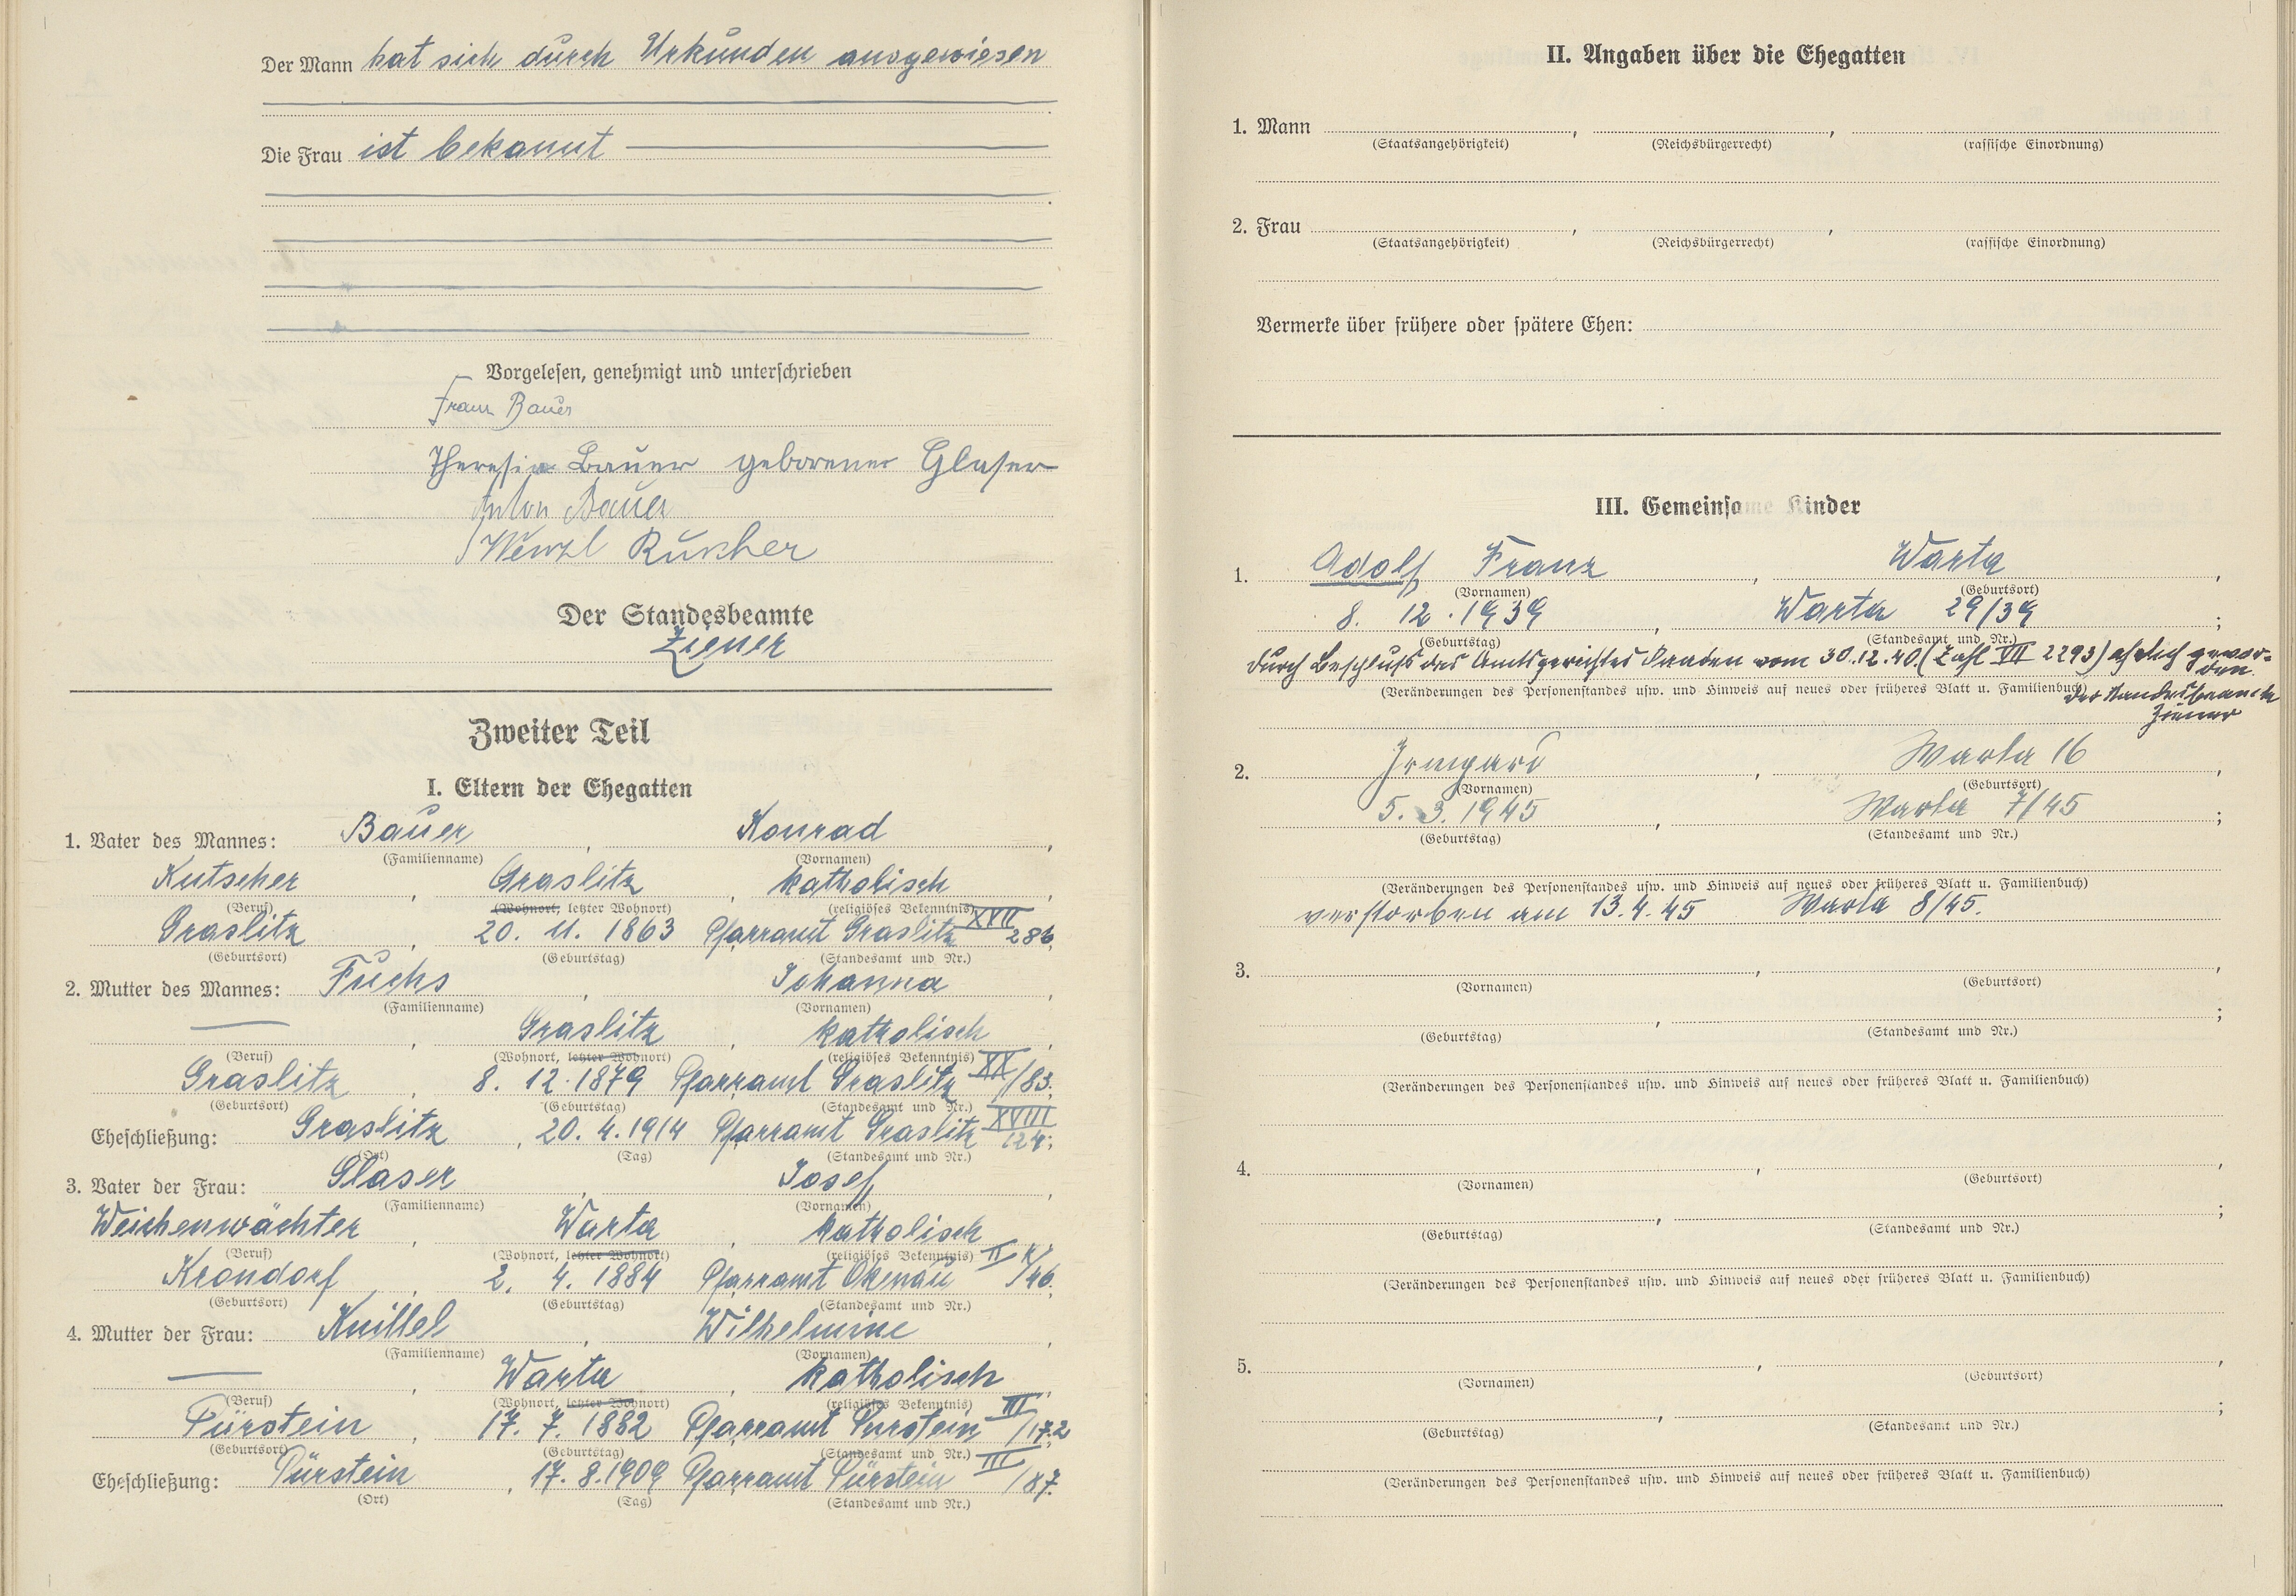 Der Mann hat sich durch Urkunden ausgewiesen
Die Frau ist bekannt
Vorgelesen, genehmigt und unterschrieben
Franz Bauer
Theresia Bauer geborener Glaser
Anton Bauer
Wenzl
Der Standesbeamte
Ziener
Zweiter Teil
I. Eltern der Ehegatten
1. Vater des Mannes: Bauer, Konrad,
(Familienname) (Vornamen)
Kutscher, Graslitz, katholisch,
(Beruf) (Wohnort, letzter Wohnort) (religiöses Bekenntnis)
Graslitz, 20. 11. 1863 Pfarramt Graslitz XVII 286,
(Geburtsort) (Geburtstag) (Standesamt und Nr.)
2. Mutter des Mannes: Fuchs, Johanna,
(Familienname) (Vornamen)
—, Graslitz, katholisch,
(Beruf) (Wohnort, letzter Wohnort) (religiöses Bekenntnis)
Graslitz, 8. 12. 1879 Pfarramt Graslitz XX/83;
(Geburtsort) (Geburtstag) (Standesamt und Nr.)
Eheschließung: Graslitz, 20. 4. 1914 Pfarramt Graslitz XVIII 124;
(Ort) (Tag) (Standesamt und Nr.)
3. Vater der Frau: Glaser, Josef,
(Familienname) (Vornamen)
Weichenwächter, Warta, katholisch,
(Beruf) (Wohnort, letzter Wohnort) (religiöses Bekenntnis)
Krondorf, 2. 4. 1884 Pfarramt Okenau II /46,
(Geburtsort) (Geburtstag) (Standesamt und Nr.)
4. Mutter der Frau: Knillel, Wilhelmine,
(Familienname) (Vornamen)
—, Warta, katholisch,
(Beruf) (Wohnort, letzter Wohnort) (religiöses Bekenntnis)
Pürstein, 17. 7. 1882 Pfarramt Pürstein III/172
(Geburtsort) (Geburtstag) (Standesamt und Nr.)
Eheschließung: Pürstein, 17. 8. 1909 Pfarramt Pürstein III/87.
(Ort) (Tag) (Standesamt und Nr.)
II. Angaben über die Ehegatten
1. Mann , ,
(Staatsangehörigkeit) (Reichsbürgerrecht) (rassische Einordnung)
2. Frau , ,
(Staatsangehörigkeit) (Reichsbürgerrecht) (rassische Einordnung)
Vermerke über frühere oder spätere Ehen:
III. Gemeinsame Kinder
1. Adolf Franz, Warta,
(Vornamen) (Geburtsort)
8. 12. 1939, Warta 29/39;
(Geburtstag) (Standesamt und Nr.)
durch Beschluß des Amtsgerichtes Kaaden vom 30.12.40. (Zahl VII 2293) ehelich gewor-
den.
(Veränderungen des Personenstandes usw. und Hinweis auf neues oder früheres Blatt u. Familienbuch)
Der Standesbeamte
Ziener
2. Irmgard, Warta 16,
(Vornamen) (Geburtsort)
5. 3. 1945, Warta 7/45;
(Geburtstag) (Standesamt und Nr.)
(Veränderungen des Personenstandes usw. und Hinweis auf neues oder früheres Blatt u. Familienbuch)
verstorben am 13.4.45 Warta 8/45.
3. , ,
(Vornamen) (Geburtsort)
, ;
(Geburtstag) (Standesamt und Nr.)
(Veränderungen des Personenstandes usw. und Hinweis auf neues oder früheres Blatt u. Familienbuch)
4. , ,
(Vornamen) (Geburtsort)
, ;
(Geburtstag) (Standesamt und Nr.)
(Veränderungen des Personenstandes usw. und Hinweis auf neues oder früheres Blatt u. Familienbuch)
5. , ,
(Vornamen) (Geburtsort)
, ;
(Geburtstag) (Standesamt und Nr.)
(Veränderungen des Personenstandes usw. und Hinweis auf neues oder früheres Blatt u. Familienbuch)